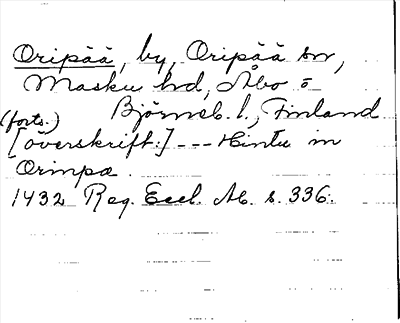 Oripää, by, Oripää sn,
Masku hd, Åbo o
(forts.) Björneb. l., Finland
[överskrift:] --- Hintu in
Orinpæ.
1432 Reg. Eccl. Ab. s. 336.